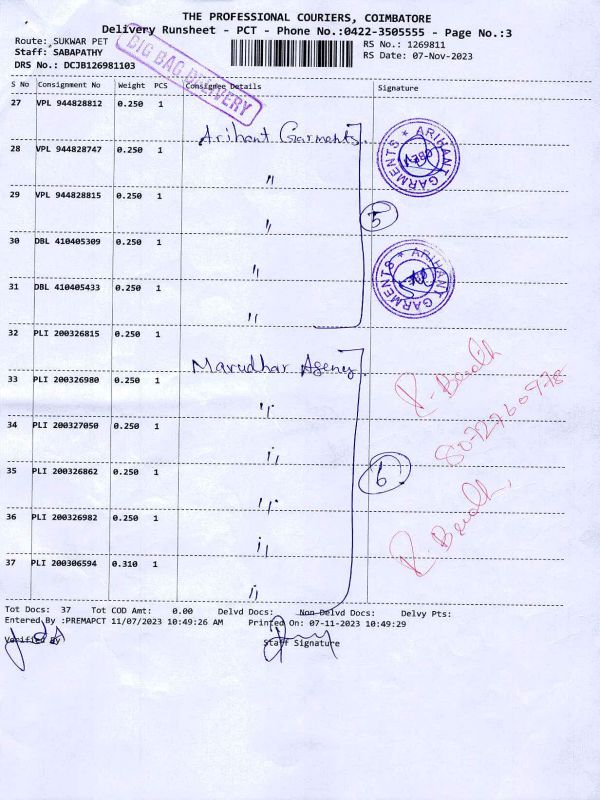 THE PROFESSIONAL COURIERS, COIMBATORE
Delivery Runsheet - PCT - Phone No.:0422-3505555 - Page No.:3
Route: SUKWAR PET
RS No.: 1269811
Staff: SABAPATHY
RS Date: 07-Nov-2023
DRS No.: DCJB126981103
BIG BAG DELIVERY
S No Consignment No Weight PCS Consignee Details Signature
27 VPL 944828812 0.250 1
Arihant Garments
28 VPL 944828747 0.250 1
"
ARIHANT GARMENTS
29 VPL 944828815 0.250 1
"
5
30 DBL 410405309 0.250 1
"
ARIHANT GARMENTS
31 DBL 410405433 0.250 1
"
32 PLI 200326815 0.250 1
Marudhar Agency
33 PLI 200326980 0.250 1
"
34 PLI 200327050 0.250 1
"
35 PLI 200326862 0.250 1
"
6
36 PLI 200326982 0.250 1
"
37 PLI 200306594 0.310 1
"
Tot Docs: 37 Tot COD Amt: 0.00 Delvd Docs: Non Delvd Docs: Delvy Pts:
Entered By :PREMAPCT 11/07/2023 10:49:26 AM Printed On: 07-11-2023 10:49:29
Verified By Staff Signature